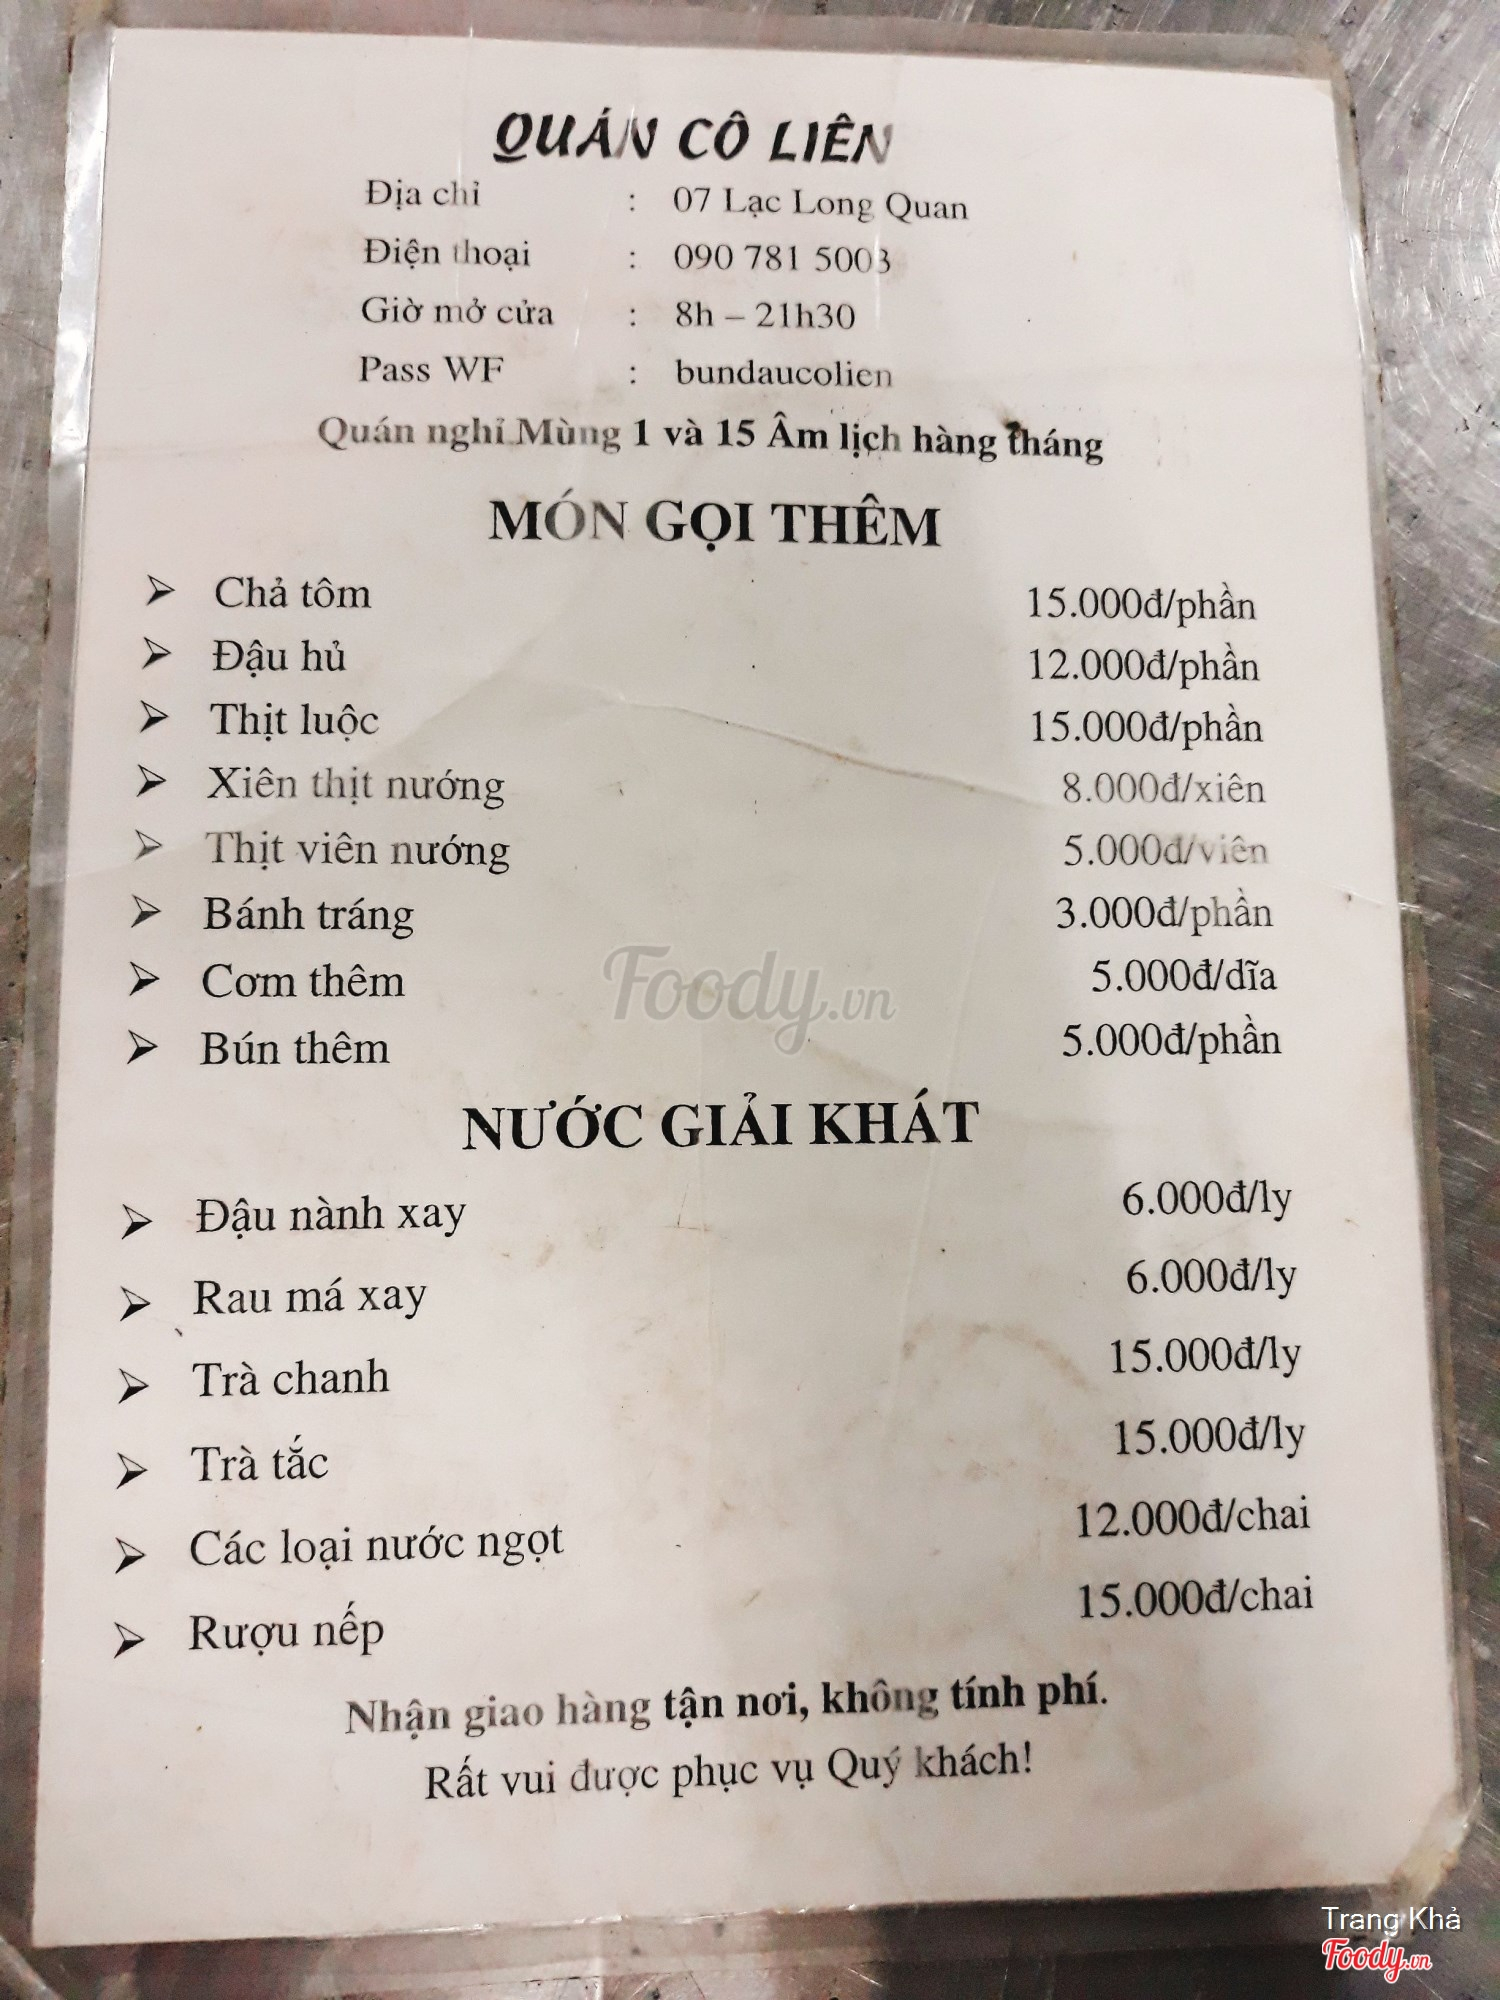 QUÁN CÔ LIÊN
Địa chỉ : 07 Lạc Long Quan
Điện thoại : 090 781 5003
Giờ mở cửa : 8h – 21h30
Pass WF : bundaucolien
Quán nghỉ Mùng 1 và 15 Âm lịch hàng tháng
MÓN GỌI THÊM
➢ Chả tôm 15.000đ/phần
➢ Đậu hủ 12.000đ/phần
➢ Thịt luộc 15.000đ/phần
➢ Xiên thịt nướng 8.000đ/xiên
➢ Thịt viên nướng 5.000đ/viên
➢ Bánh tráng 3.000đ/phần
➢ Cơm thêm 5.000đ/dĩa
➢ Bún thêm 5.000đ/phần
Foody.vn
NƯỚC GIẢI KHÁT
➢ Đậu nành xay 6.000đ/ly
➢ Rau má xay 6.000đ/ly
➢ Trà chanh 15.000đ/ly
➢ Trà tắc 15.000đ/ly
➢ Các loại nước ngọt 12.000đ/chai
➢ Rượu nếp 15.000đ/chai
Nhận giao hàng tận nơi, không tính phí.
Rất vui được phục vụ Quý khách!
Trang Khả
Foody.vn